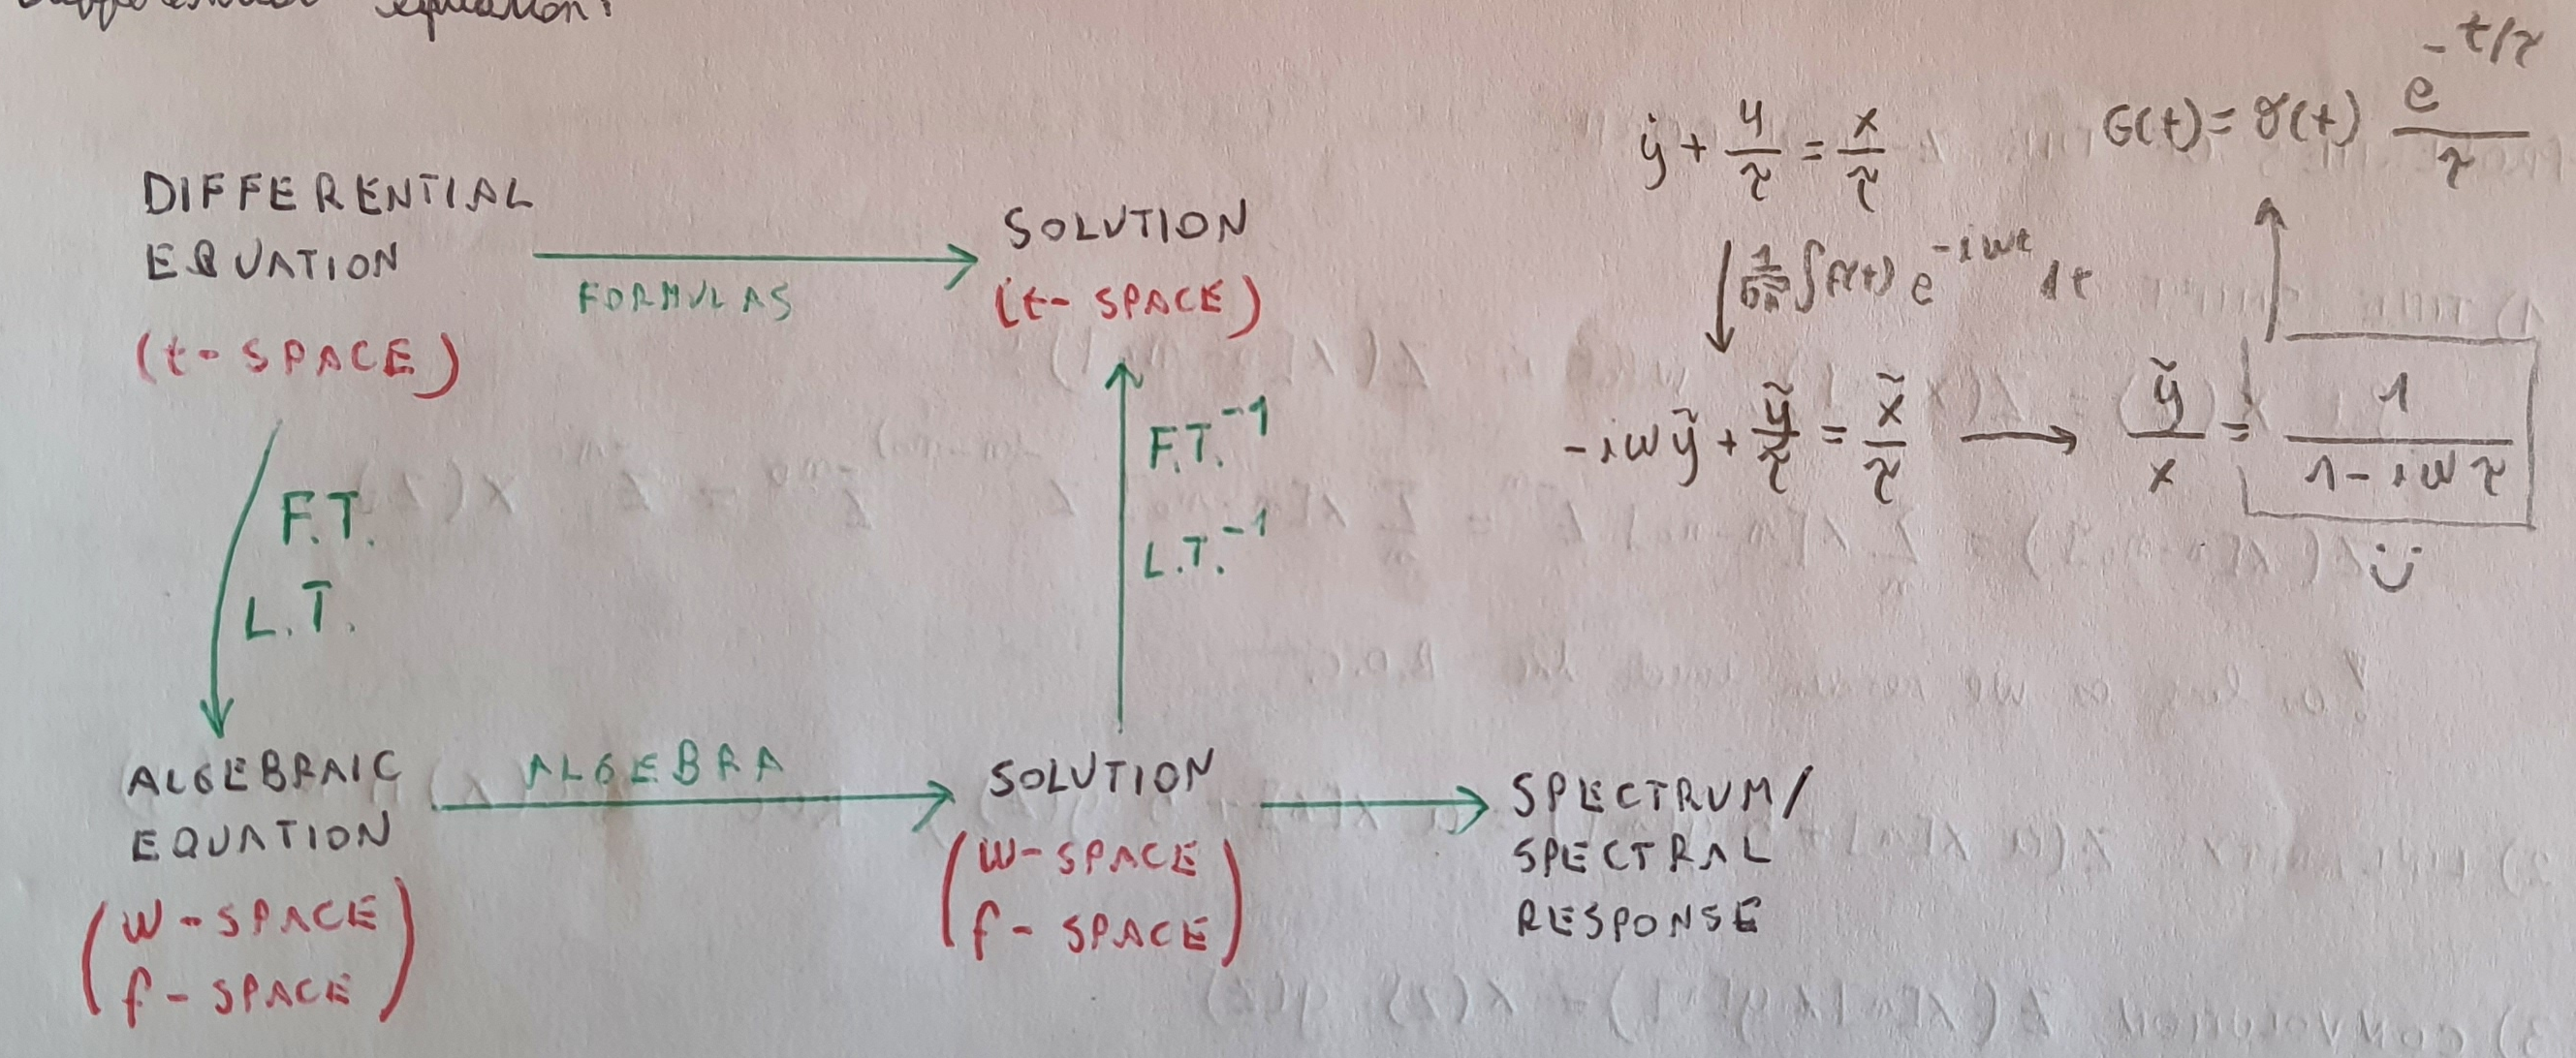 differential equation:
DIFFERENTIAL
EQUATION
(t-SPACE)
FORMULAS
SOLUTION
(t-SPACE)
F.T.
L.T.
F.T.⁻¹
L.T.⁻¹
ALGEBRAIC
EQUATION
(w-SPACE
f-SPACE)
ALGEBRA
SOLUTION
(w-SPACE
f-SPACE)
SPECTRUM/
SPECTRAL
RESPONSE
ẏ + y/τ = x/τ
∫f(t) e^{-iwt} dt
-iwỹ + ỹ/τ = x̃/τ → ỹ/x = 1/(1-iwτ)
G(t) = γ(t) e^{-t/τ}/τ